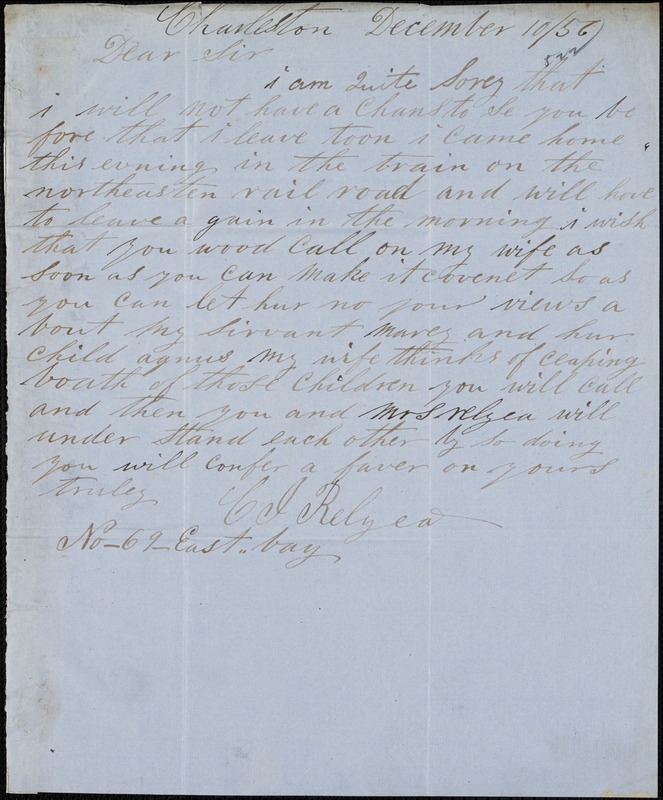 Charleston December 10/56
522
Dear Sir
i am quite Sorey that
i will not have a Chans to Se you be
fore that i leave toon i came home
this evning in the train on the
northeasten rail road and will have
to leave a gain in the morning i wish
that you wood Call on my wife as
Soon as you can make it covenet So as
you can let hur no your views a
bout my Sirvant marey and hur
Child agnus my wife thinks of Ceaping
boath of those Children you will Call
and then you and mrs relyea will
under Stand each other by so doing
you will Confer a faver on yours
truley
C J Relyea
No-69-East.. bay